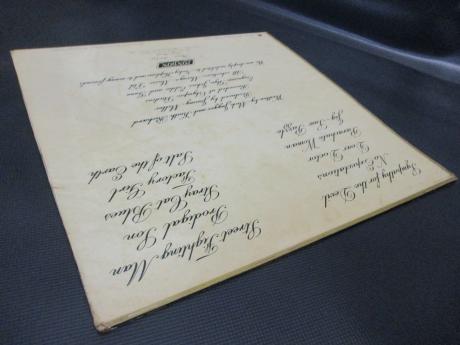 Sympathy for the Devil
No Expectations
Dear Doctor
Parachute Woman
Jig-Saw Puzzle
Street Fighting Man
Prodigal Son
Stray Cat Blues
Factory Girl
Salt of the Earth
Written by Mick Jagger and Keith Richard
Produced by Jimmy Miller
Recorded at Olympic Studios
Glyn Johns Eddie and Gene
All selections Music
We are deeply indebted to Nicky Hopkins and to many friends
LONDON